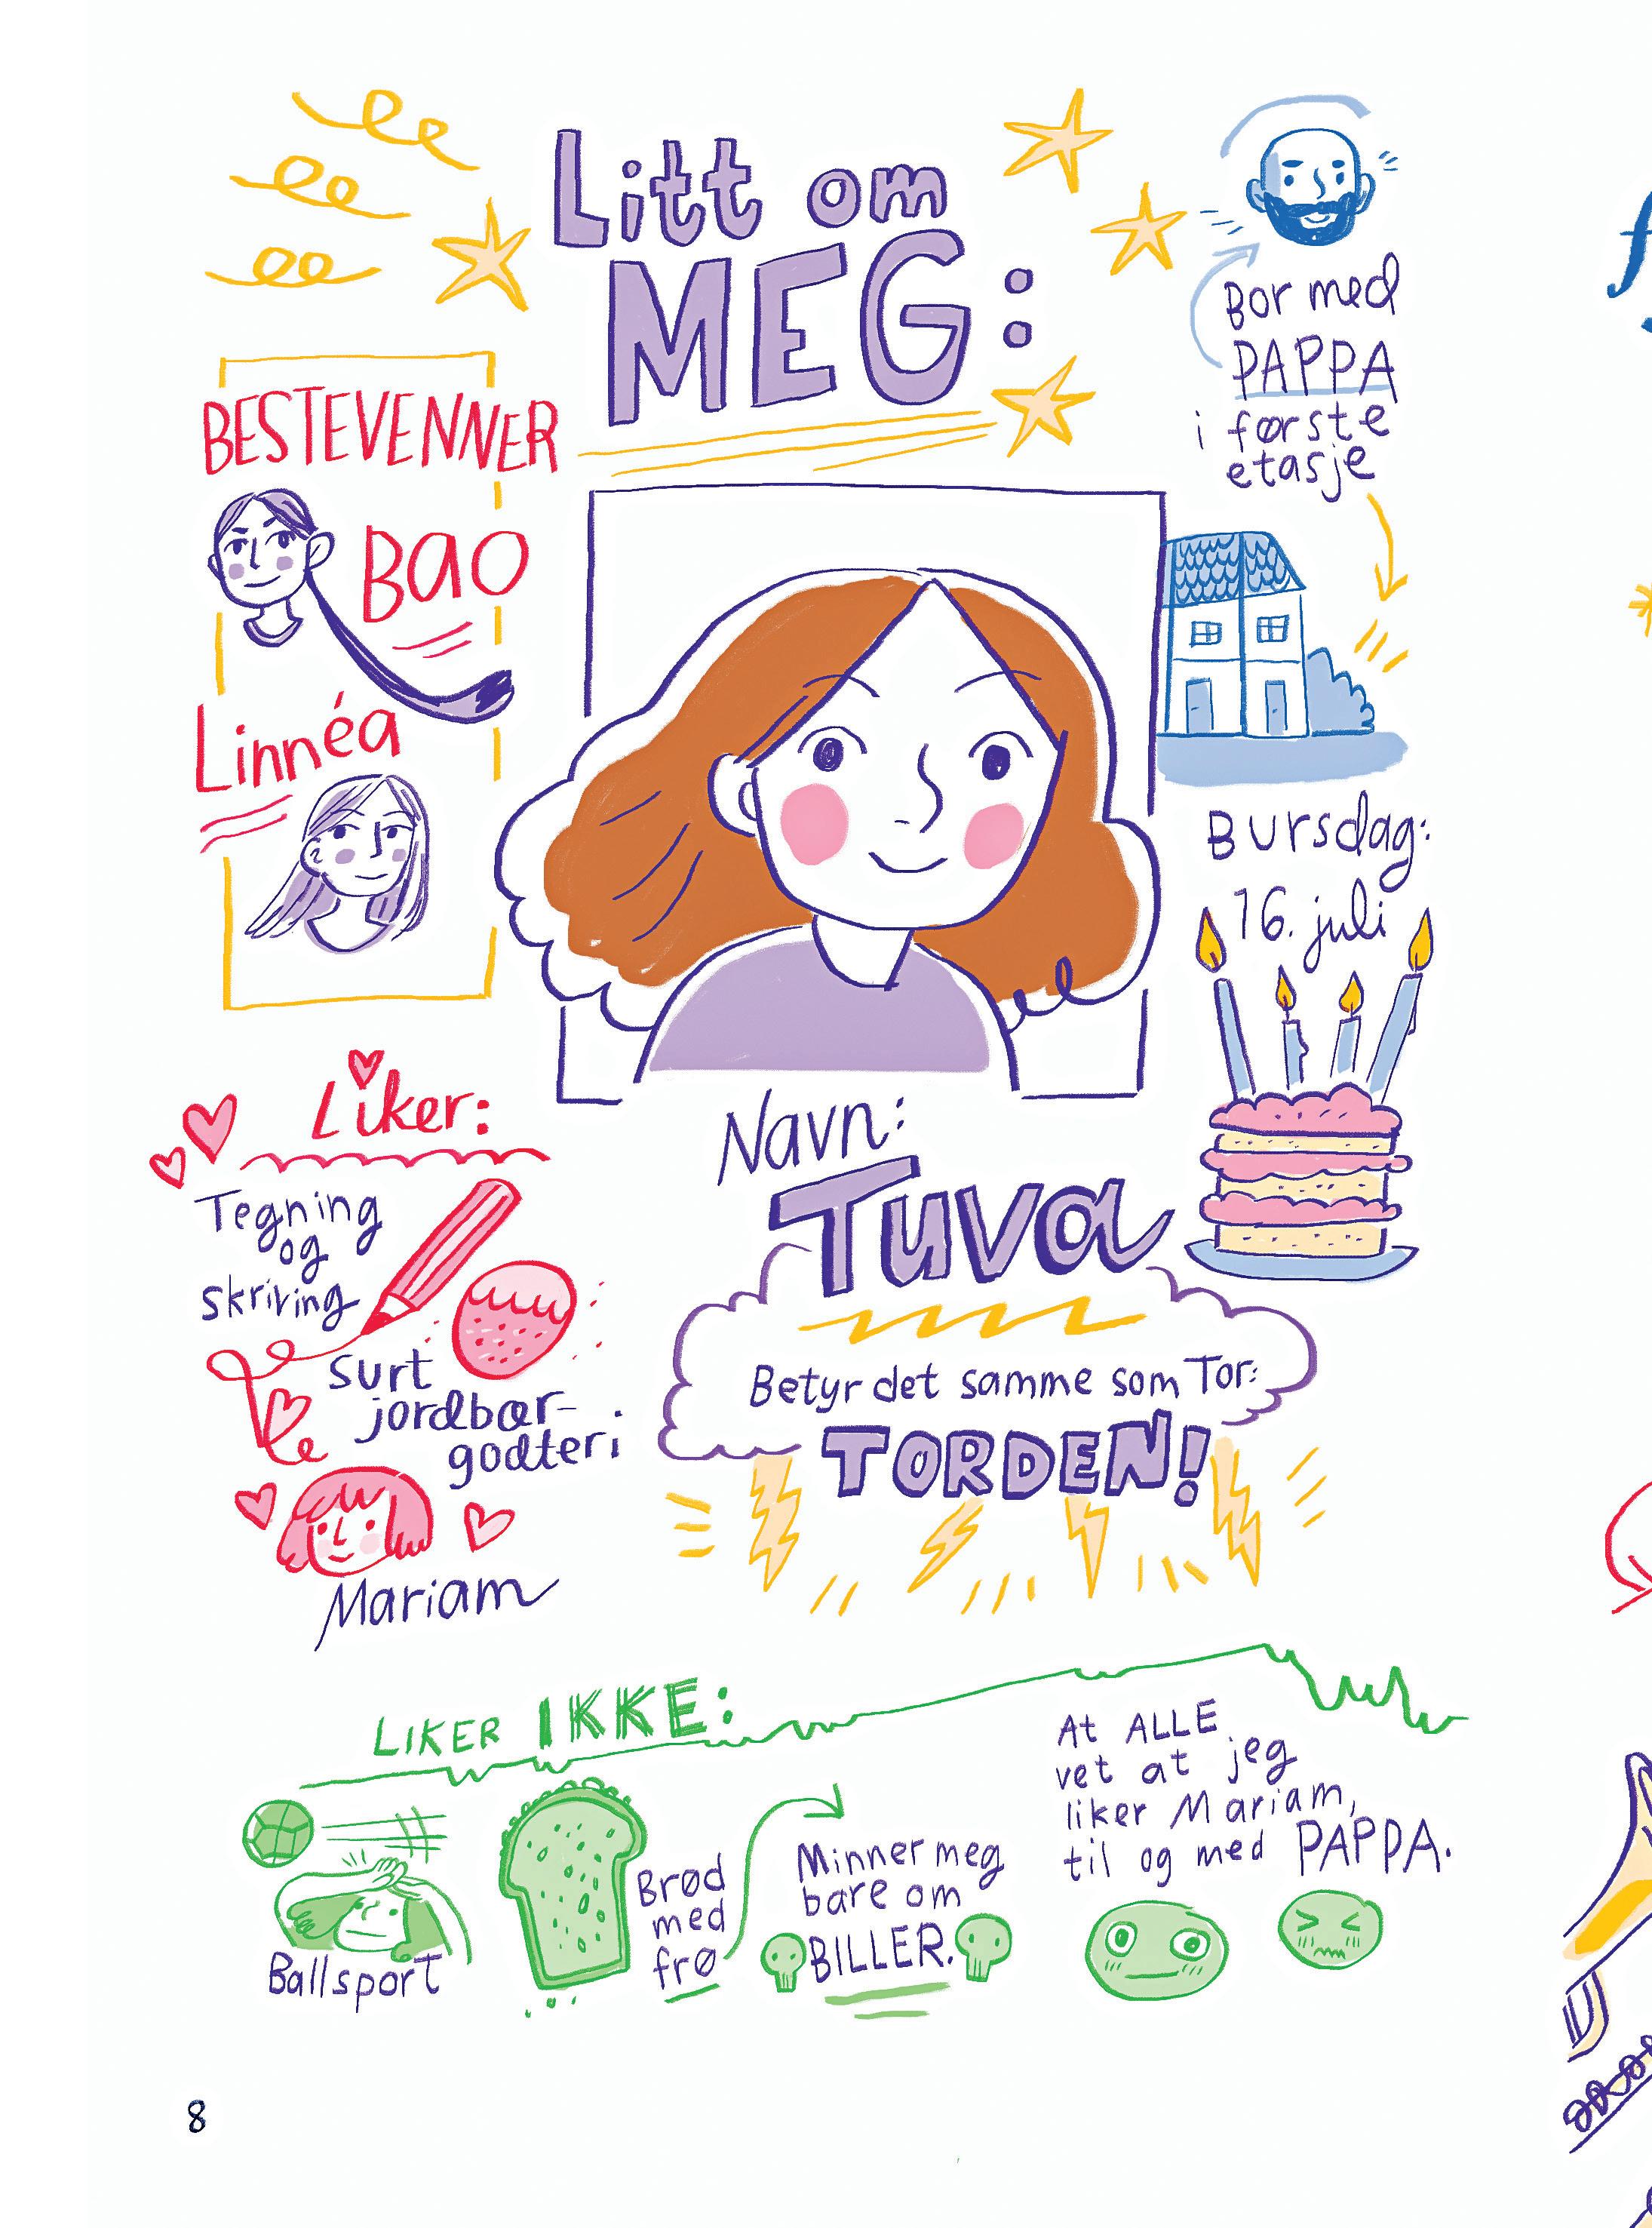 Litt om
MEG:
Bor med
PAPPA
i første
etasje
BESTEVENNER
Bao
Linnéa
Bursdag:
16. juli
Liker:
Tegning
og
skriving
Surt
jordbær-
godteri
Mariam
Navn:
Tuva
Betyr det samme som Tor:
TORDEN!
LIKER IKKE:
Ballsport
Brød
med
frø
Minner meg
bare om
BILLER.
At ALLE
vet at jeg
liker Mariam,
til og med PAPPA.
8